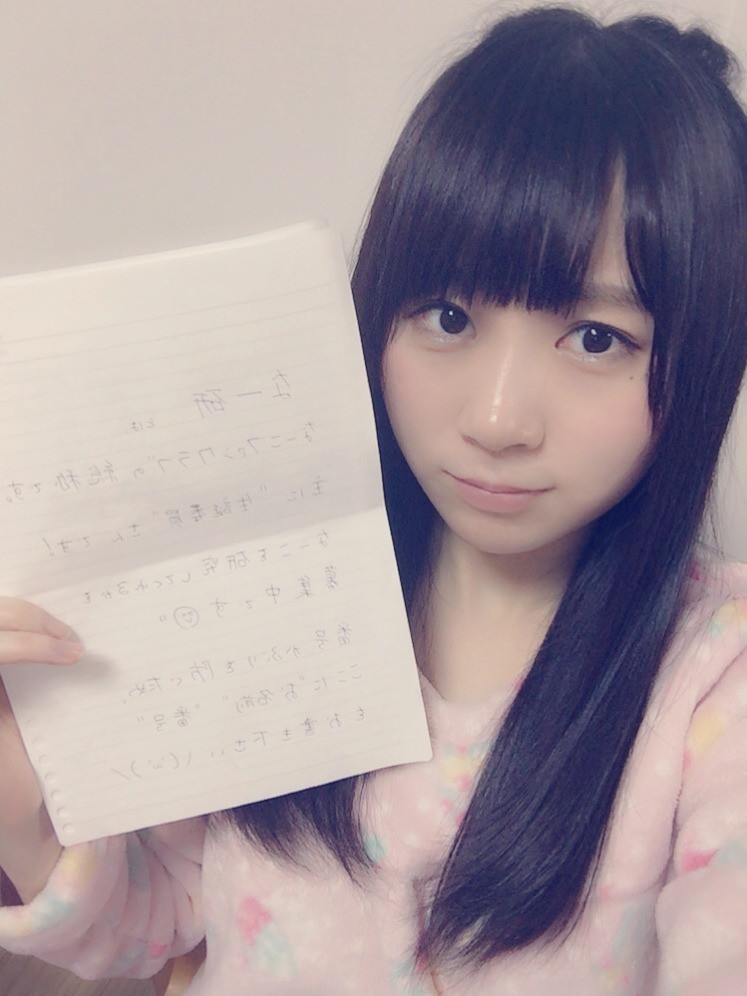 なー研
とは
なーこファンクラブの総称です。
主に"生誕委員"さんです!
なーこを研究してくれる方を
募集中です☺"
番号かぶりを防ぐため、
ここに"お名前" "番号"
をお書き下さい\(^^)/